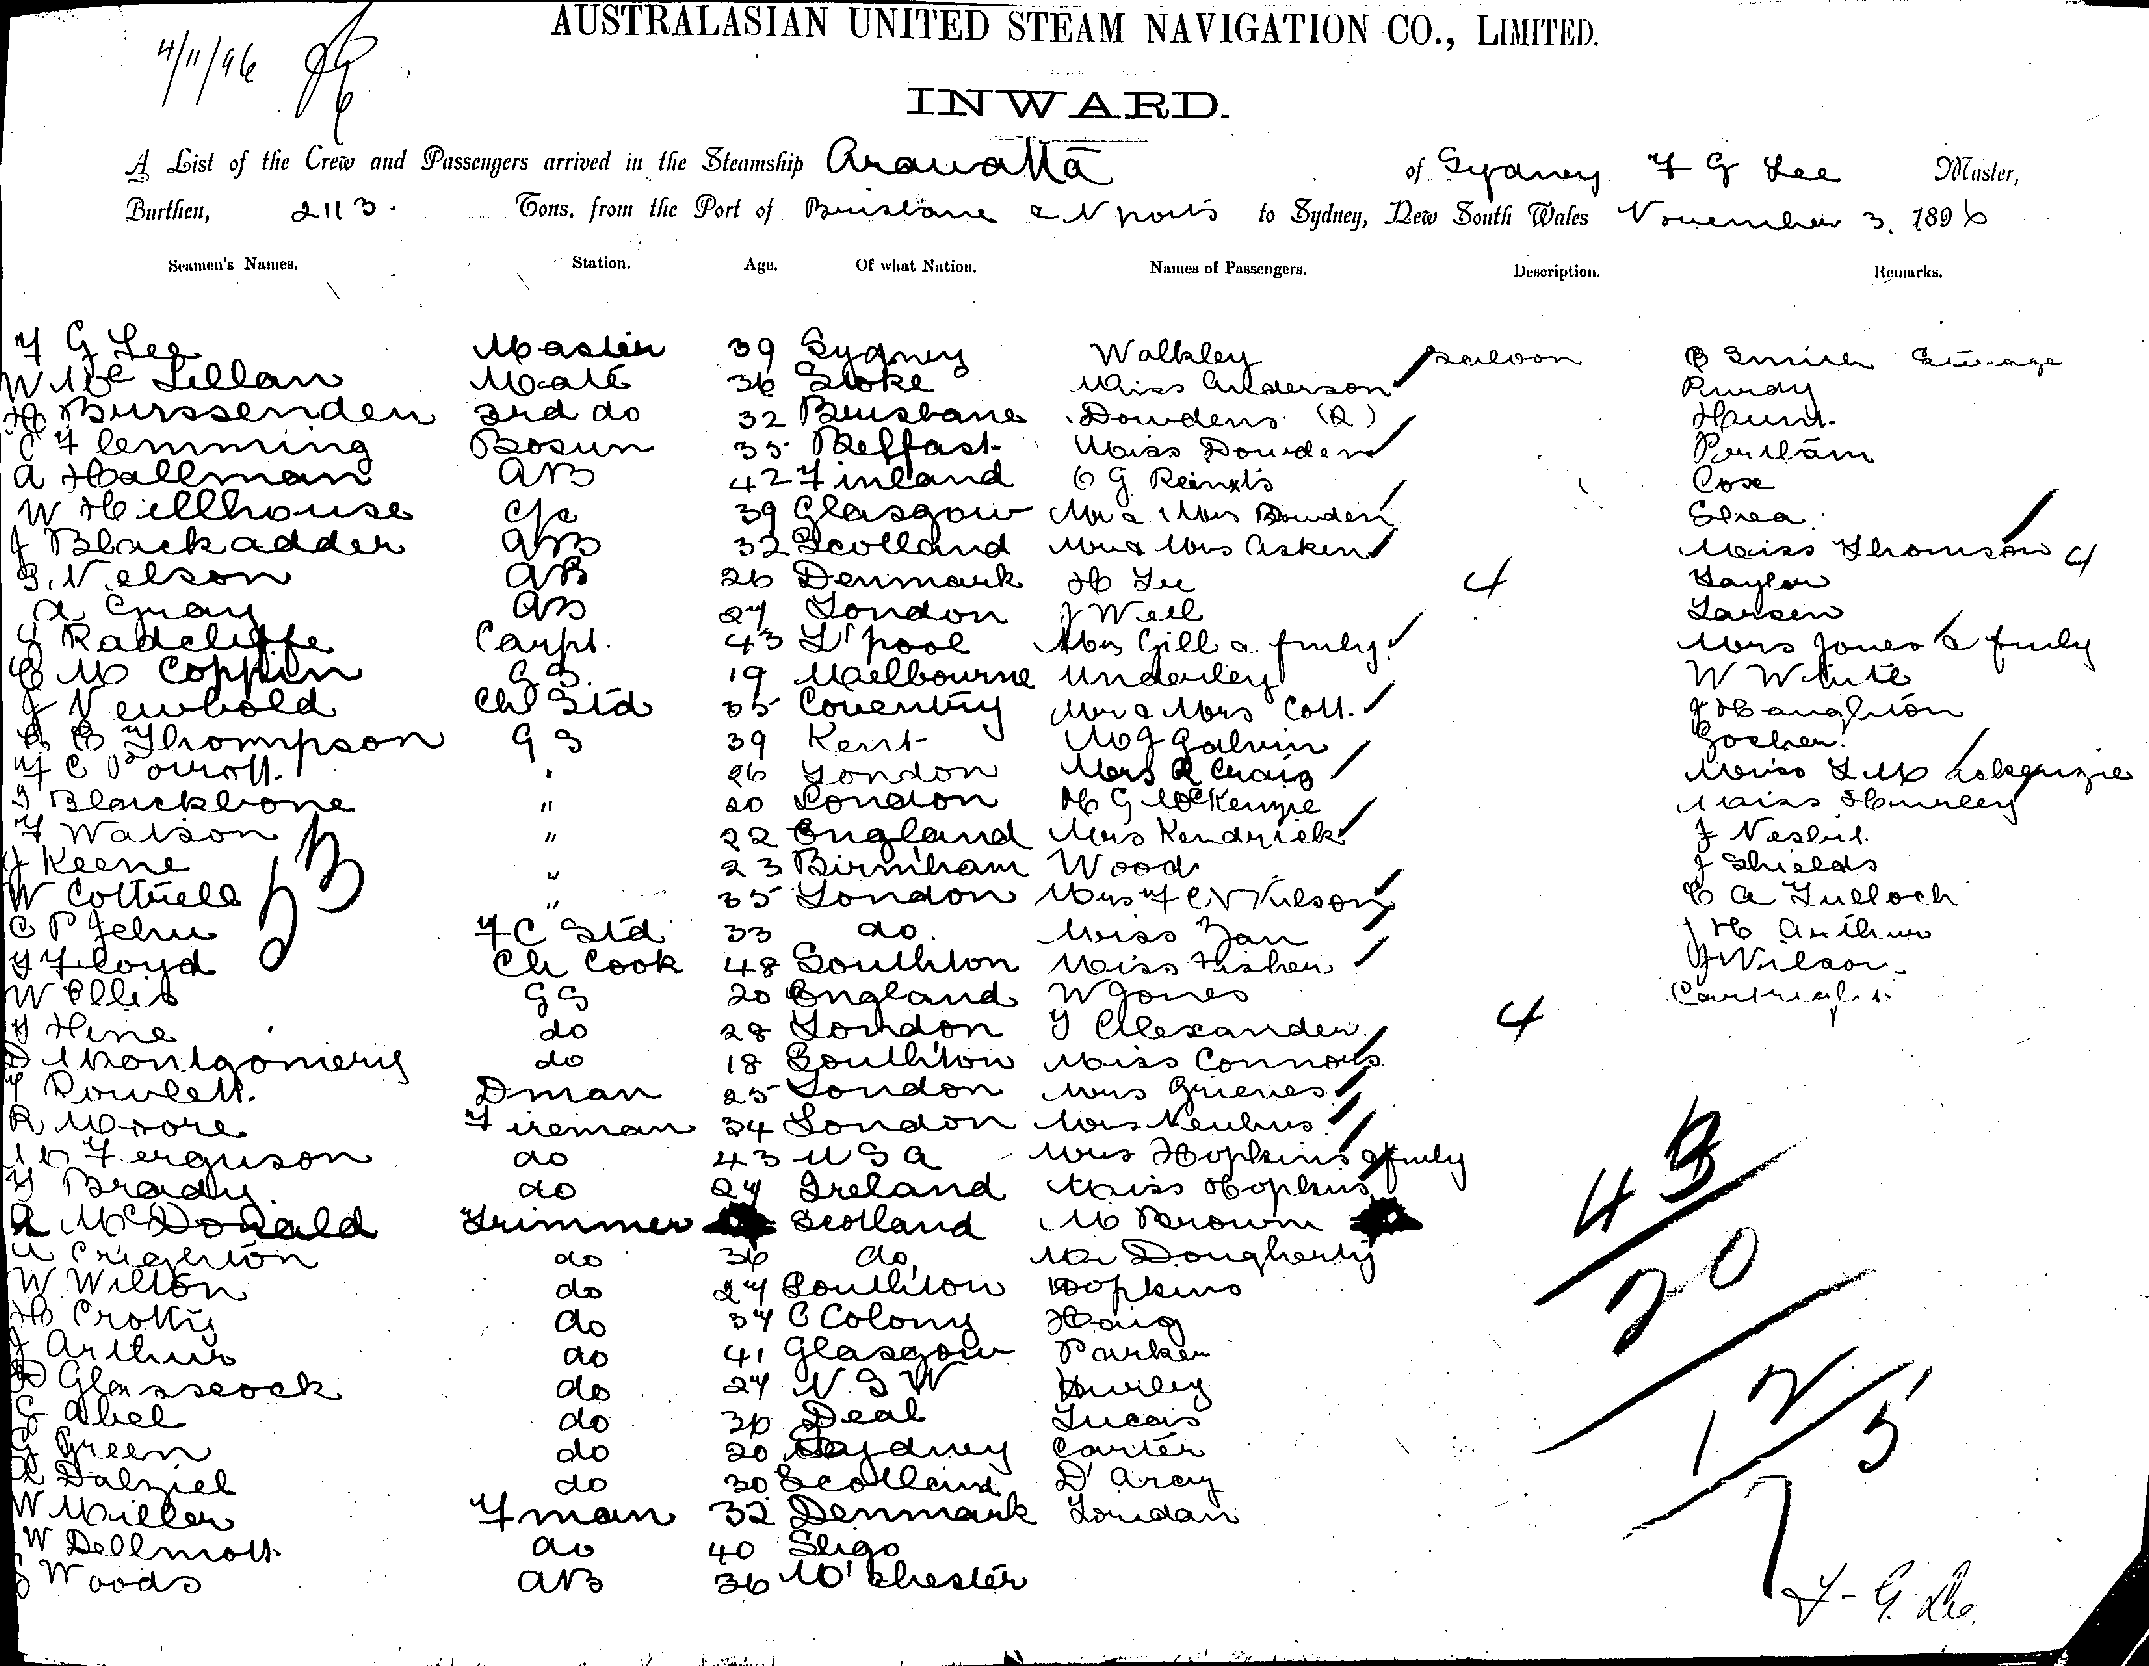 4/11/96
AUSTRALASIAN UNITED STEAM NAVIGATION CO., LIMITED.
INWARD.
A List of the Crew and Passengers arrived in the Steamship Arawatta of Sydney F G Lee Master,
Burthen, 2113. Tons, from the Port of Brisbane & N ports to Sydney, New South Wales November 3, 1896
Seamen's Names. Station. Age. Of what Nation. Names of Passengers. Description. Remarks.
F G Lee Master 39 Sydney Walkley saloon B Smith Steerage
W McLellan Mate 36 Stoke Miss Anderson Purdy
H Burssenden 3rd do 32 Brisbane Dowdens (2) Hunt
C Flemming Bosun 35 Belfast Miss Dowden Pertlam
A Hallman AB 42 Finland C G Reinolts Cox
W Hillhouse 39 Glasgow Mr & Mrs Bowden Shea
J Blackadder AB 32 Scotland Mr & Mrs Asken Miss Thomson 4
G. Nelson AB 26 Denmark H Lee 4 Taylor
A Gray AB 27 London J Weil Larsen
J Radcliffe Carpt. 43 L'pool Mrs Gill & fmly Mrs Jones & fmly
C M Coppin G S. 19 Melbourne Underley W White
J Newbold Ch Std 35 Coventry Mr & Mrs Cott. J Haughton
C Thompson G S 39 Kent M J Galvin Gosher
F C Porrott. " 26 London Mrs R Craig Miss L M McKenzie
J Blackbone " 20 London H G McKenzie Miss Hurley
F Watson " 22 England Mrs Kendrick J Nesbit
J Keene " 23 Birmham Wood J Shields
W Cottrell " 35 London Mrs F C N Nilson C A Tulloch
53
C P Jehu F C Std 33 do. Miss Zan J H Arthur
Y Floyd Ch Cook 48 Southton Miss Fisher J Wilson
W Ellis G S 20 England W Jones Cartright
F Hine do 28 London T Alexander 4
D Montgomery do 18 Southton Miss Connors
T Rowlett. Dman 25 London Mrs Grieves
R Moore Fireman 34 London Mrs Neuhus
Ferguson do 43 U S A Mrs Hopkins & fmly
Y Brady. do 27 Ireland Miss Hopkins
A McDonald Trimmer Scotland M Brown
A Crighton do 36 do Mr Dougherty
W Wilton do 27 Southton Hopkins
H Crotty do 37 C Colony Haig
J Arthur do 41 Glasgow Parker
D Glasscock do 27 N. S W Hurley
G Abel do 30 Deal Lucas
G Green do 20 Sydney Carter
A Dalziel do 30 Scotland D'Arcy
W Miller Fman 32 Denmark Loudan
W Dellmott do 40 Sligo
S Woods AB 36 M'chester
43
20
12/5
7
F. G. Lee